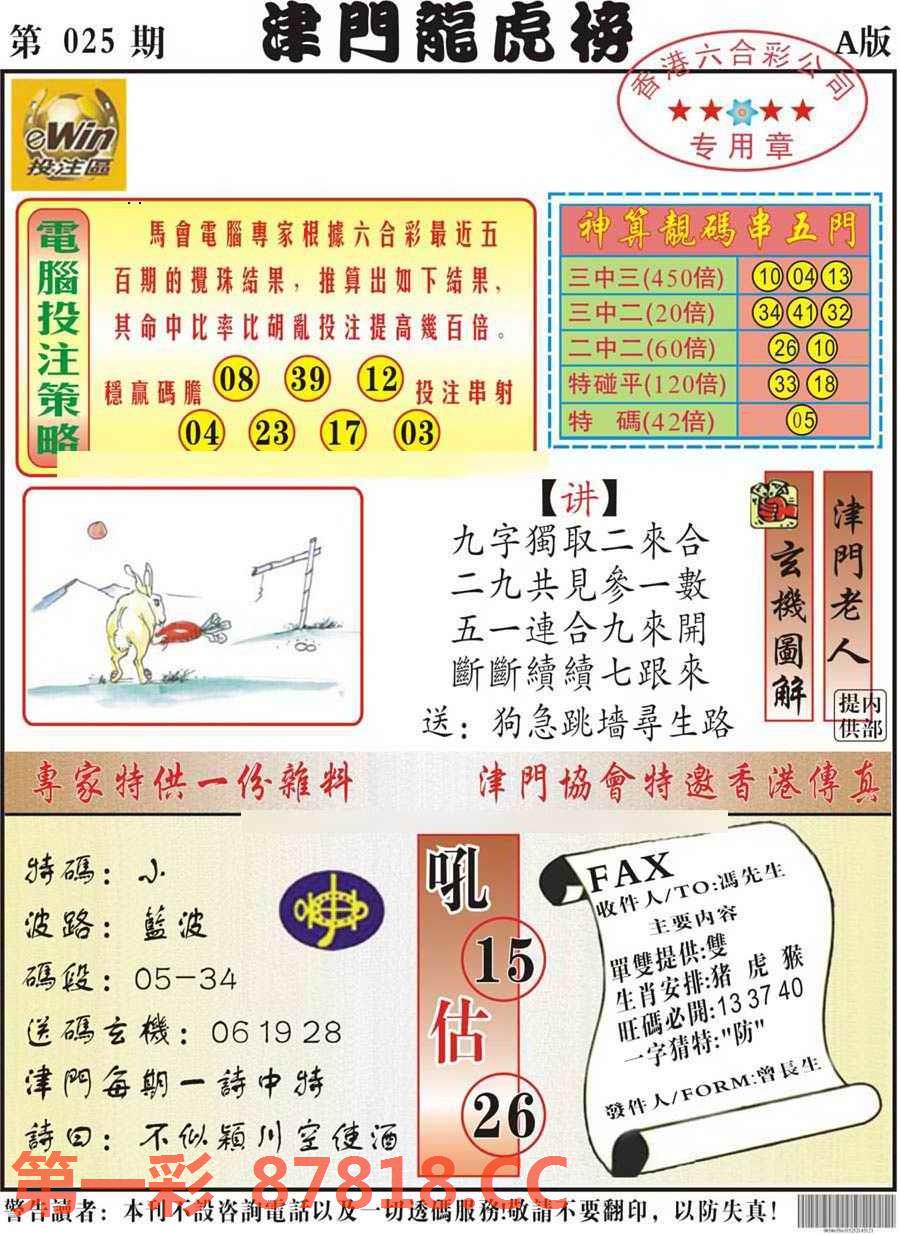 第 025 期
津門龍虎榜
A版
香港六合彩公司
专用章
eWin
投注區
電腦投注策略
馬會電腦專家根據六合彩最近五
百期的攪珠結果，推算出如下結果，
其命中比率比胡亂投注提高幾百倍。
穩贏碼膽 08 39 12 投注串射
04 23 17 03
神算靚碼串五門
三中三(450倍) 10 04 13
三中二(20倍) 34 41 32
二中二(60倍) 26 10
特碰平(120倍) 33 18
特 碼(42倍) 05
【讲】
九字獨取二來合
二九共見參一數
五一連合九來開
斷斷續續七跟來
送：狗急跳墙尋生路
玄機圖解
津門老人
内部提供
專家特供一份雜料
津門協會特邀香港傳真
特碼：小
波路：藍波
碼段：05-34
送碼玄機：06 19 28
津門每期一詩中特
詩曰：不似穎川空使酒
吼
15
估
26
FAX
收件人/TO:馮先生
主要内容
單雙提供:雙
生肖安排:猪 虎 猴
旺碼必開:13 37 40
一字猜特:"防"
發件人/FORM:曾長生
第一彩 87818.CC
警告讀者：本刊不設咨詢電話以及一切透碼服務!敬請不要翻印，以防失真!